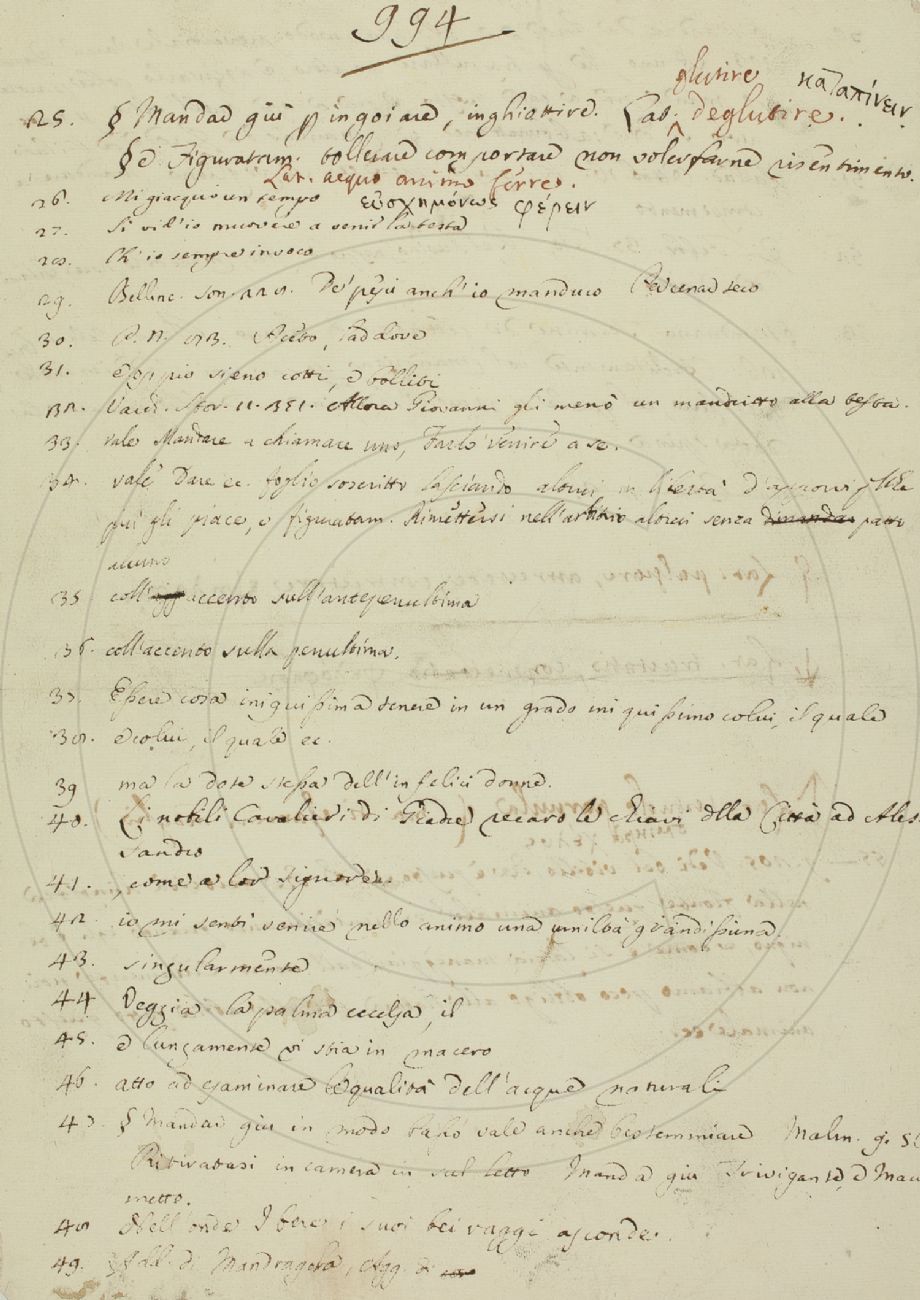 994
glutire καταπίνειν
25. § Mandar giù p ingoiare, inghiottire. Lat. deglutire.
§ e Figuratam. tollerare comportare non volerfarne risentimento.
Lat. aequo animo ferre.
26. Mi giacquio un tempo εὐσχημόνως φέρειν
27. Si vid'io muovere a venir la testa
28. Ch'io sempre invoco
29. Bellinc. son. 229. De' pesci anch'io manduco
30. laddove
31. e sieno cotti, e bolliti
32. Varch. Stor. 11. 351. Allora Giovanni gli menò un mandritto alla testa.
33. vale Mandare a chiamare uno, Farlo venire a se.
34. vale Dare ec. foglio soscritto lasciando altrui in libertà
più gli piace, e figuratam. Rimettersi nell'arbitrio altrui senza patto
alcuno
35 coll' accento sull'antepenultima
36. coll'accento sulla penultima.
37. Essere cosa iniquissima tenere in un grado iniquissimo colui, il quale
38. e colui, il quale ec.
39 ma la dote stessa dell'infelici donne.
40. Li nobili Cavalieri di recaro le chiavi della Città ad Ales
sandro
41. , come a lor signore.
42 io mi sentì venire nello animo una umiltà grandissima.
43. singularmente
44 Veggia la palma eccelsa, il
45. e lungamente vi stia in macero
46. atto ad esaminare le qualità dell'acque naturali
47. § Mandar giù in modo basso vale anche bestemmiare Malm.
Ritiratasi in camera in sul letto Manda giù Trivigante, e Mau
metto.
48 Nell'onde Ibere i suoi bei raggi asconde.
49. Add. di Mandragola, Agg. di